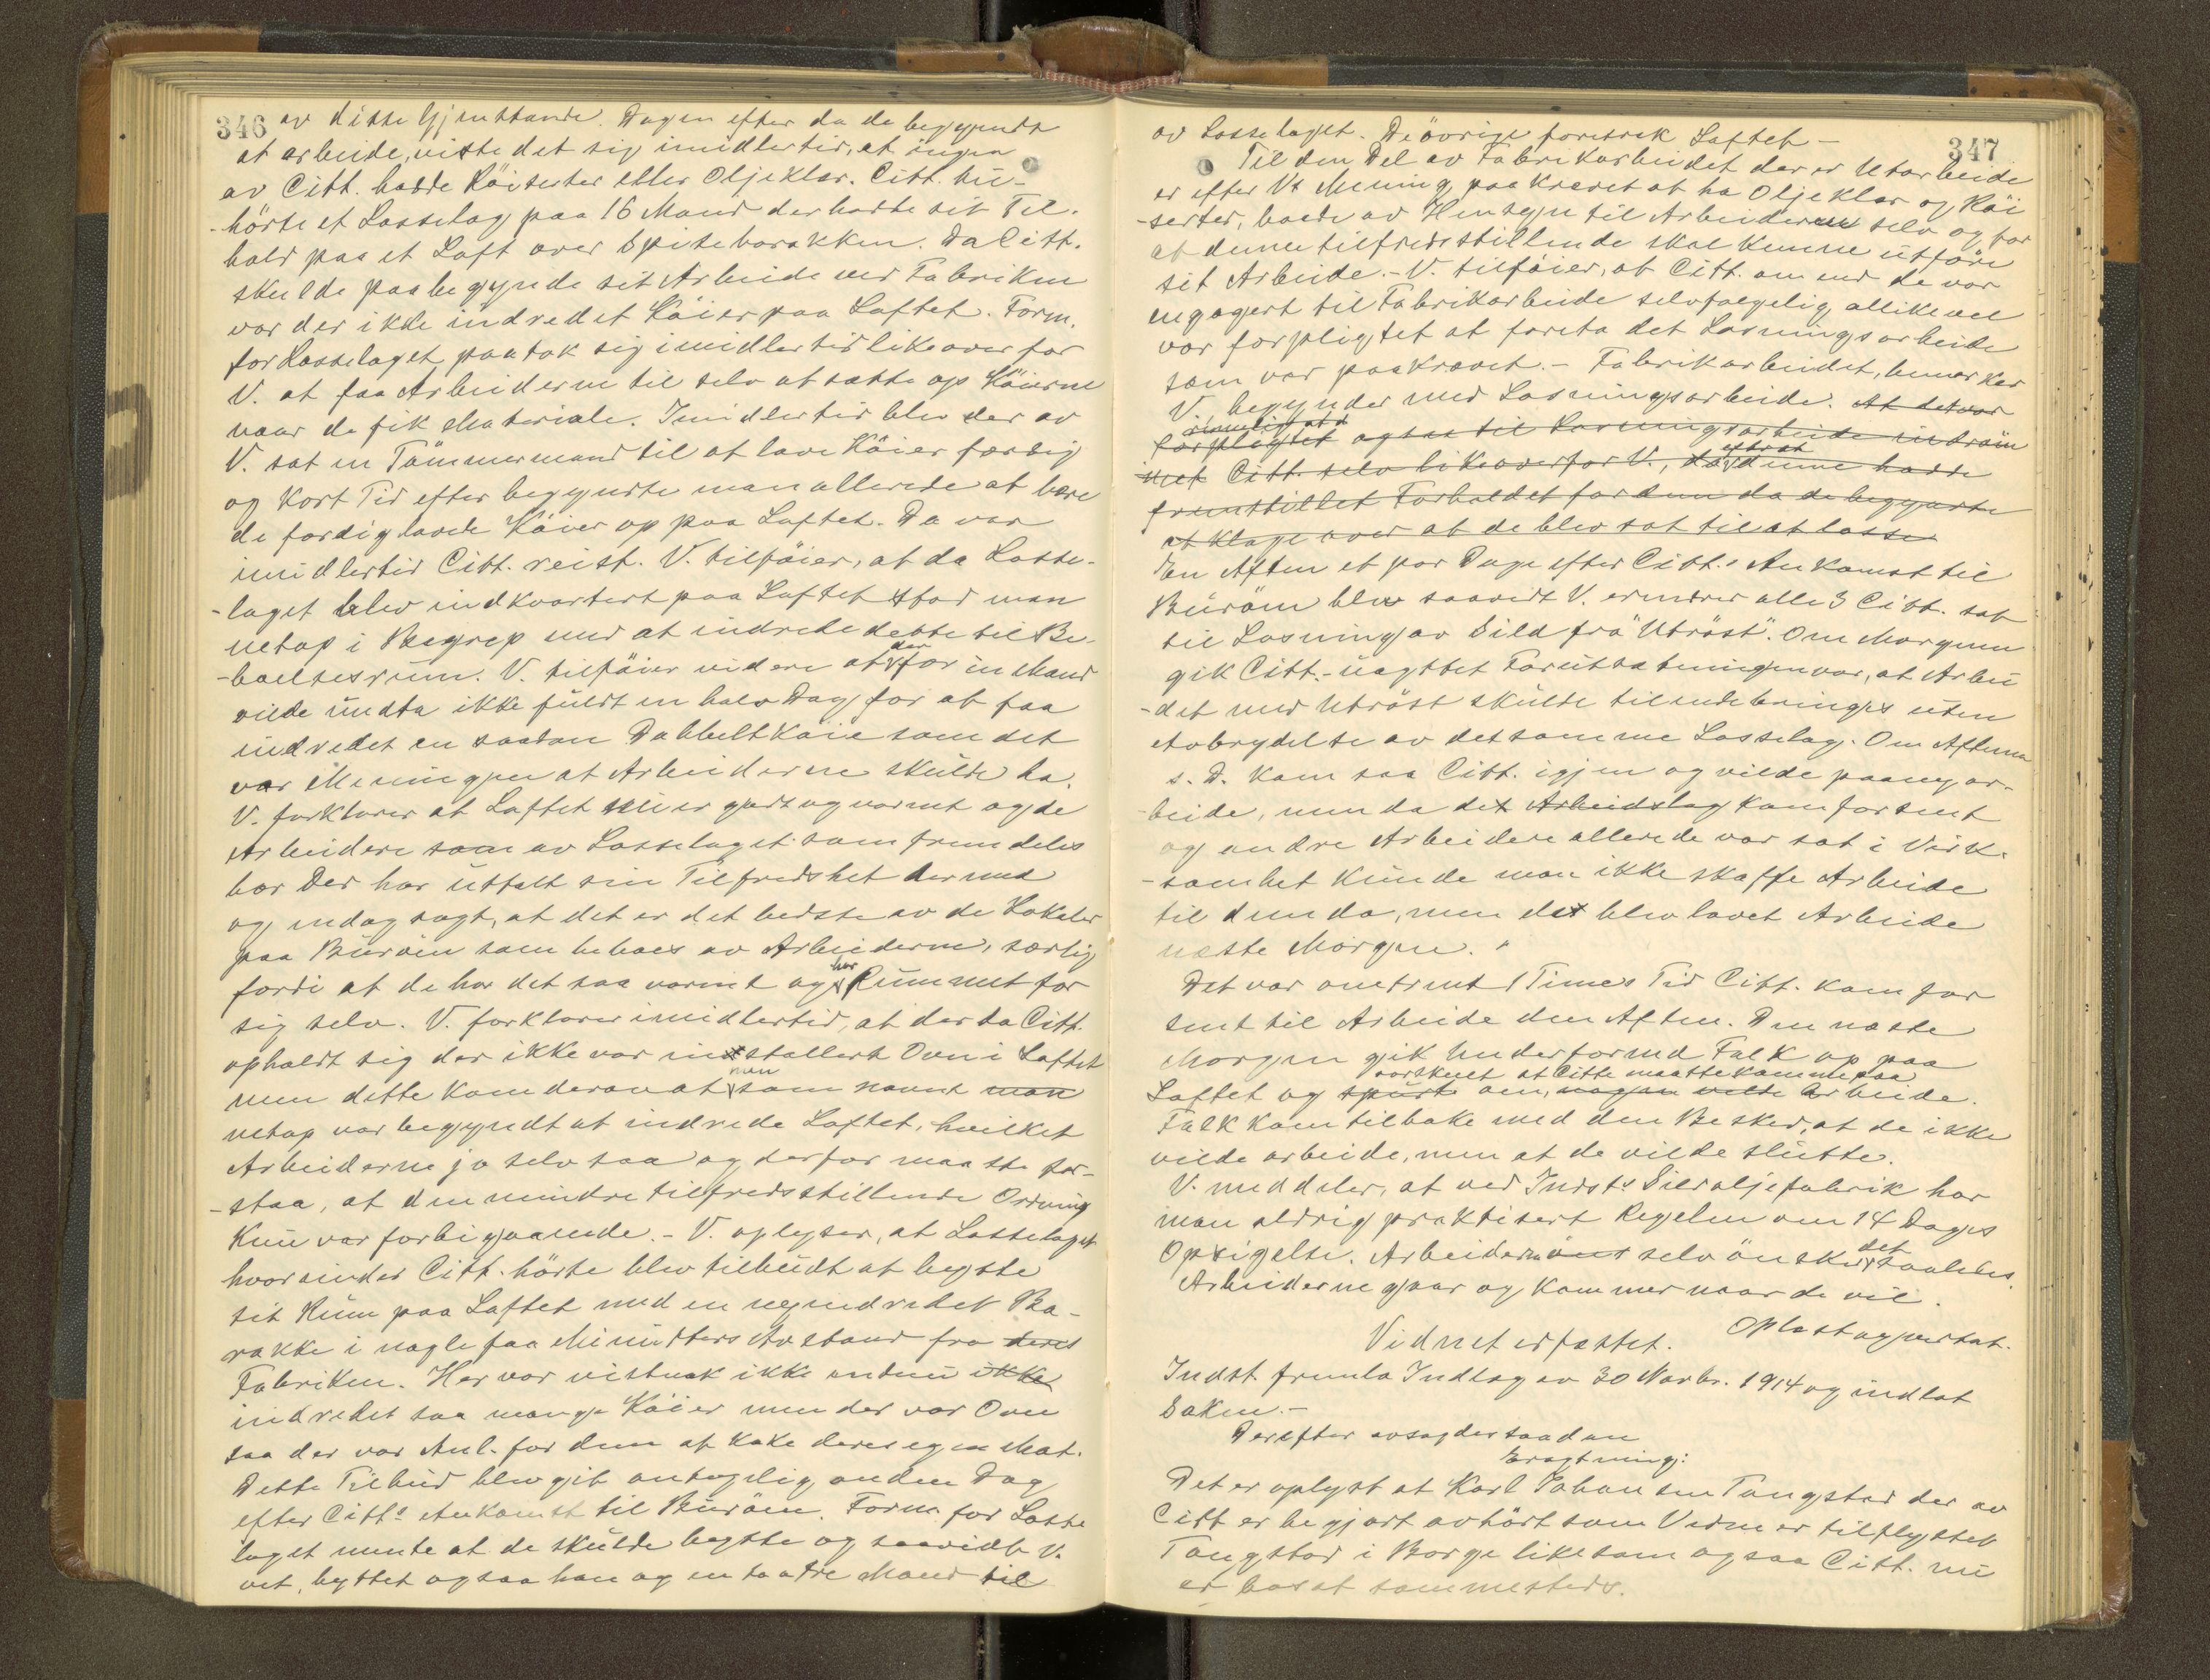 346
av disse Gjenstande. Dagen efter da de begyndte
at arbeide, viste det sig imidlertid, at ingen
av Citt. hadde Röisester eller Oljeklær. Citt. til-
-hörte et Losselag paa 16 Mand der hadde sit Til-
hold paa et Loft over Spisebarakken. Da Citt.
skulde paabegynde sit Arbeide ved Fabriken
var der ikke indredet Köier paa Loftet. Form.
for Losselaget paatok sig imidlertid likeoverfor
V. at faa Arbeiderne til selv at sætte op Köierne
naar de fik Materiale. Imidlertid blev der av
V. sat en Tömmermand til at lave Köier færdig
og kort Tid efter begyndte man allerede at bære
de færdiglavede Köier op paa Loftet. Da var
imidlertid Citt. reist. V. tilföier, at da Losse-
-laget blev indkvartert paa Loftet stod man
netop i Begrep med at indrede dette til Be-
-boelsesrum. V. tilföier videre at der for en Mand
vilde undta ikke fuldt en halv Dag for at faa
indredet en saadan Dobbeltköie som det
var Meningen at Arbeiderne skulde ha.
V. forklarer at Loftet nu er godt og varmt og de
Arbeidere som av Losselaget som fremdeles
bor der har uttalt sin Tilfredshet dermed
og endog sagt, at det er det bedste av de Lokaler
paa Buröen som beboes av Arbeiderne, særlig
fordi at de har det saa varmt og har Rummet for
sig selv. V. forklarer imidlertid, at der da Citt.
opholdt sig der ikke var installert Ovn i Loftet
men dette kom derav at man som nævnt man
netop var begyndt at indrede Loftet, hvilket
Arbeiderne jo selv saa og derfor maatte for-
-staa, at den mindre tilfredsstillende Ordning
kun var forbigaaende. - V. oplyser, at Losselaget
hvorunder Citt. hörte blev tilbudt at bytte
sit Rum paa Loftet med en nyindredet Ba-
rakke i nogle faa Minutters Avstand fra deres
Fabriken. Her var vistnok ikke endnu ikke
indredet saa mange Köier men der var Ovn
saa der var Anl. for dem at koke deres egen Mat.
Dette Tilbud blev git antagelig anden Dag
efter Citts Ankomst til Buröen. Form. for Losse
laget mente at de skulde bytte og saavidt V.
vet, byttet ogsaa han og en to a tre Mand til
347
av Losselaget. De övrige foretrak Loftet -
Til den Del av Fabrikarbeidet der er Utarbeide
er efter Vs Mening paakrævet at ha Oljeklær og Röi
-sester, baade av Hensyn til Arbeideren selv og for
at denne tilfredsstillende skal kunne utföre
sit Arbeide. - V. tilföier, at Citt. om end de var
engagert til Fabrikarbeide selvfølgelig allikevel
var forpligtet at foreta det Losningsarbeide
som var paakrævet. - Fabrikarbeidet, bemerker
V., begynder med Losningsarbeide. At det var
forpligtet ogsaa til Losningsarbeide indröm
met Citt. selv likeoverfor V., da denne hadde
fremstillet Forholdet for dem da de begyndte
at klage over at de blev sat til at losse
En Aften et par Dage efter Citt.s Ankomst til
Buröen blev saavidt V. erindrer alle 3 Citt. sat
til Losning av Sild fra "Utröst". Om Morgenen
gik Citt. - uagtet Forutsætningen var, at Arbei
-det med Utröst skulde tilendebringes uten
Avbrydelse av det samme Losselag. Om Aftenen
s. D. kom saa Citt. igjen og vilde paany ar-
-beide, men da det Arbeidslag kom forsent
og andre Arbeidere allerede var sat i Virk-
-somhet kunde man ikke skaffe Arbeide
til dem da, men det blev lovet Arbeide
næste Morgen.
Det var omtrent 1 Times Tid Citt. kom for
sent til Arbeide den Aften. Den næste
Morgen gik Underformd Falk op paa
varskuet at Citte maatte komme paa
Loftet og spurte om, nogen vilde Arbeide.
Falk kom tilbake med den Besked, at de ikke
vilde arbeide, men at de vilde slutte.
V. meddeler, at ved Indsts Sildoljefabrik har
man aldrig praktisert Regelen om 14 Dages
Opsigelse. Arbeiderne selv önsker det saaledes.
Arbeiderne gaar og kommer naar de vil.
Oplæst og vedtat.
Vidnet erfæstet.
Indst. fremla Indlæg av 30 Novbr. 1914 og indlot
Saken. -
Derefter avsagdes saadan
Eragtning:
Det er oplyst at Karl Johansen Tangstad der av
Citt er begjært avhört som Vidne er tilflyttet
Tangstad i Borge likesom ogsaa Citt. nu
er bosat sammesteds.